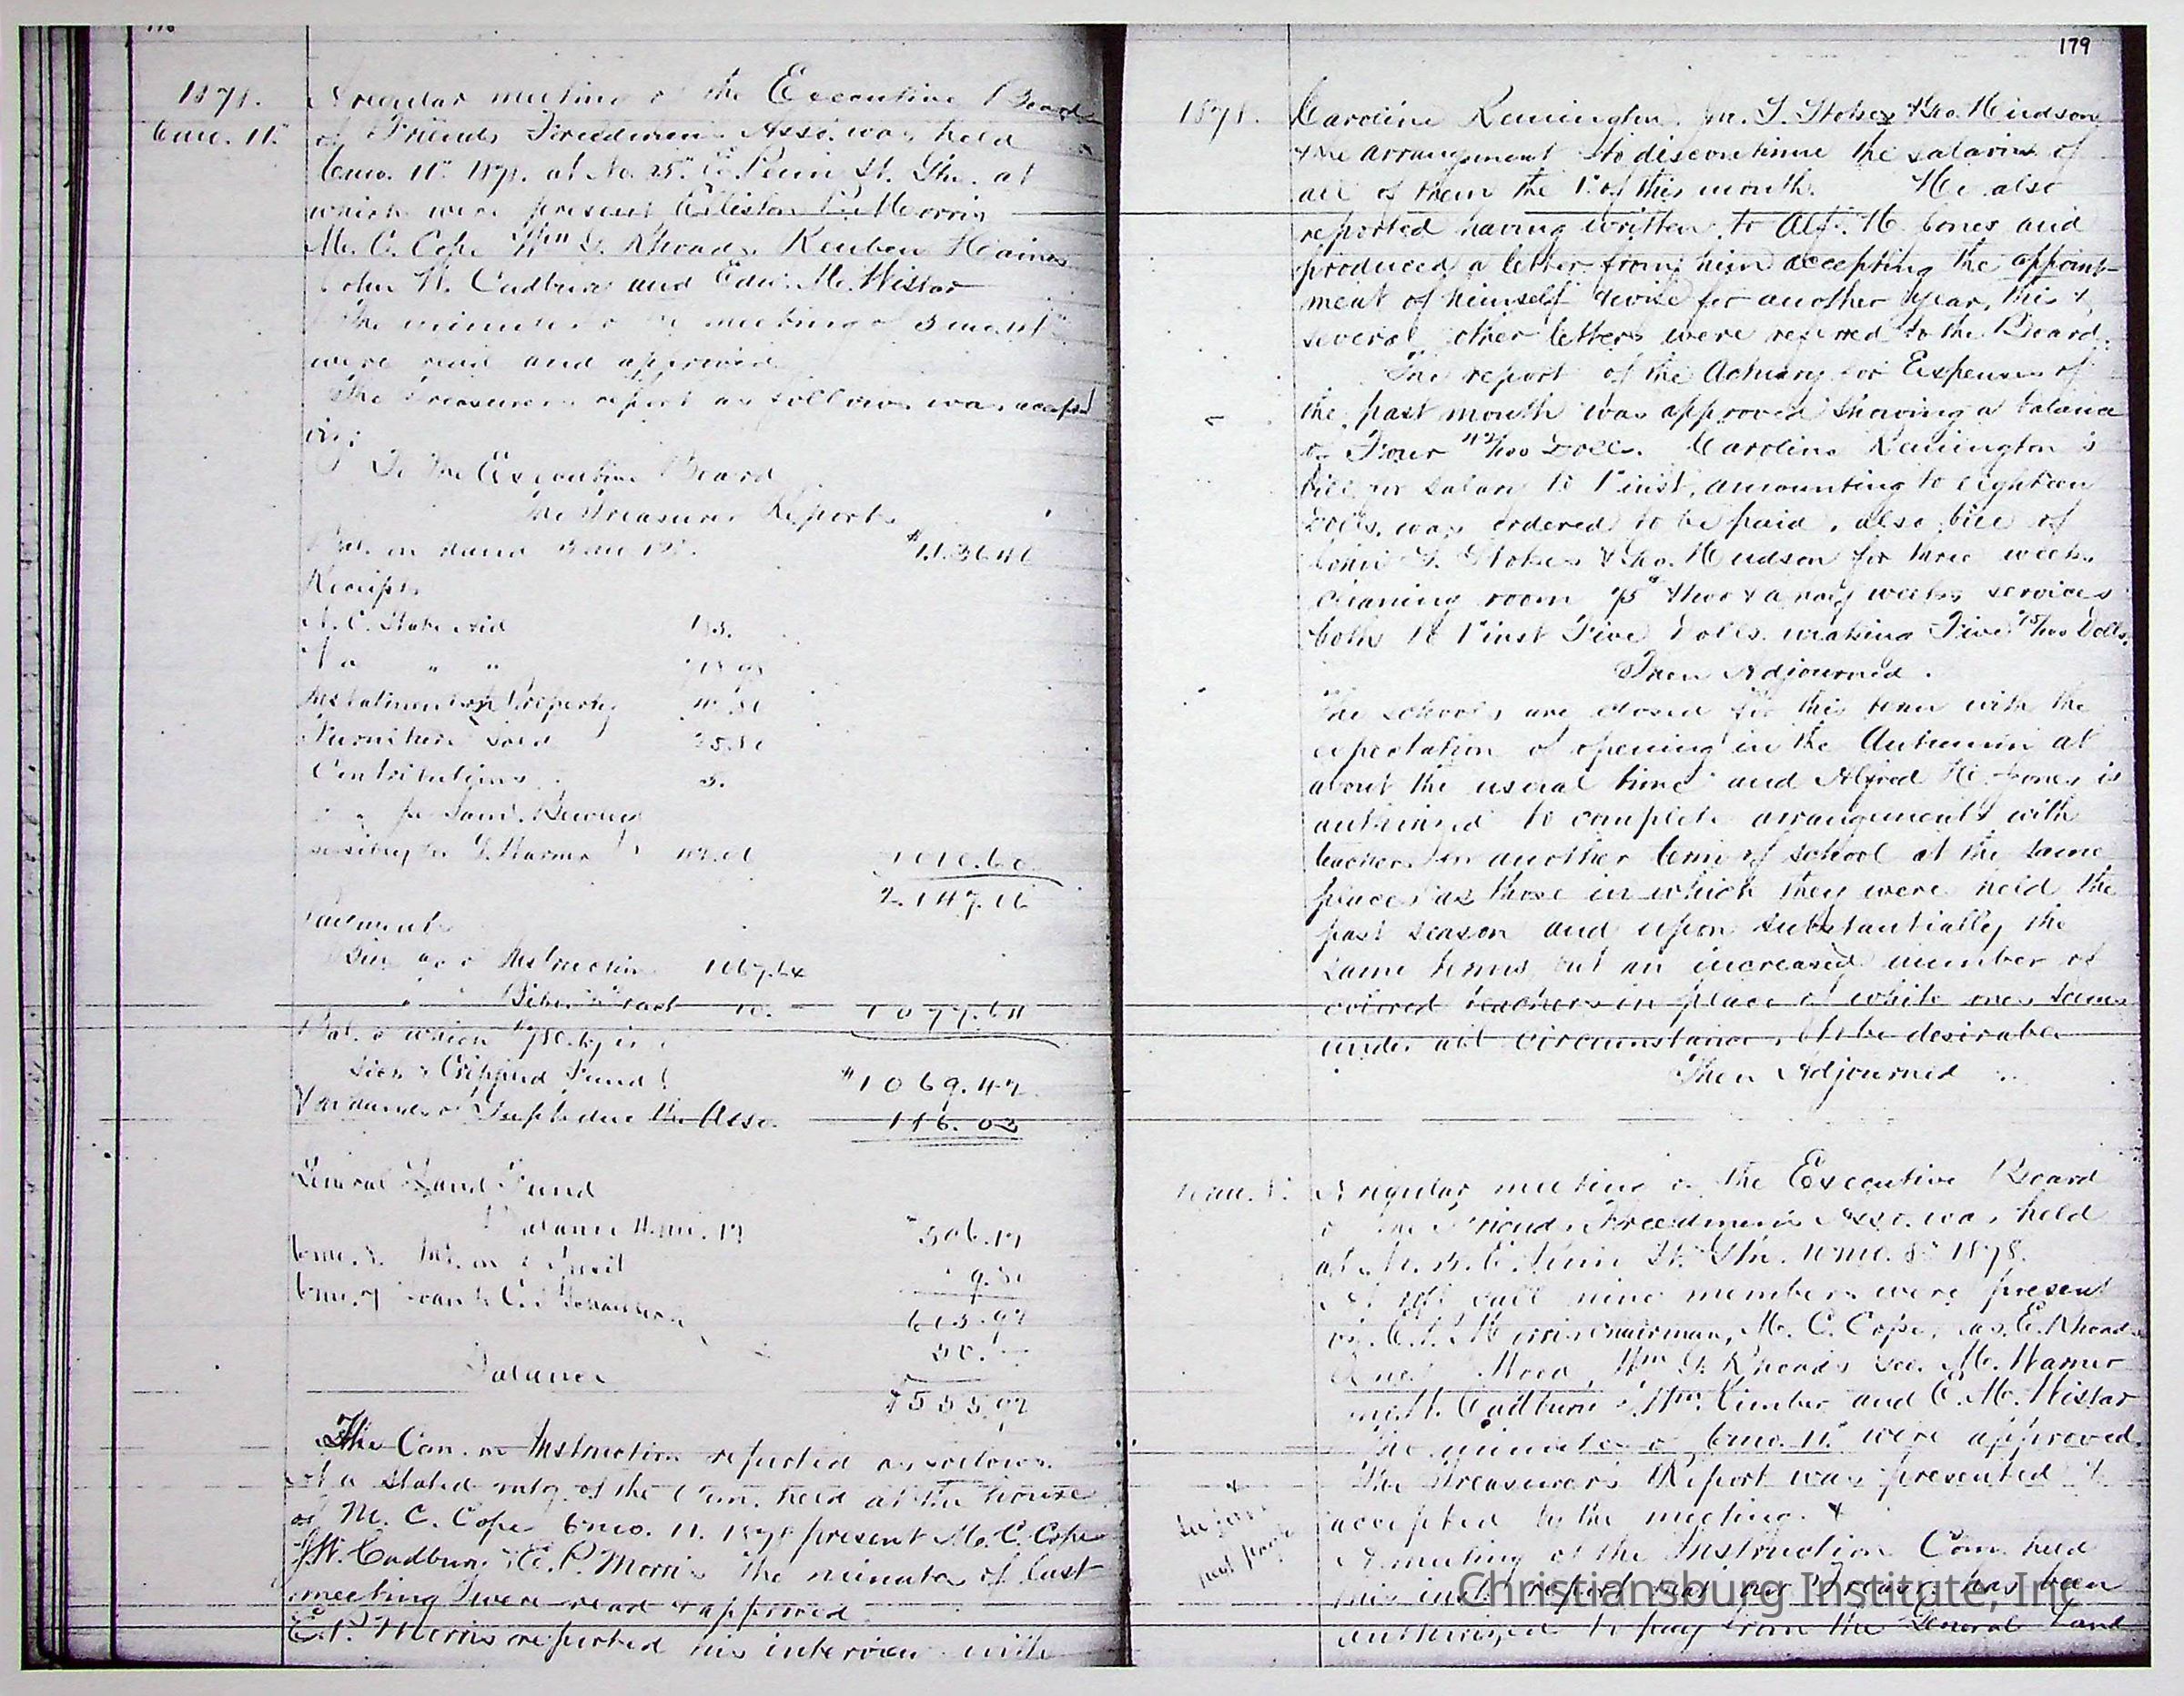 1878.
6mo. 11"
A regular meeting of the Executive Board
of Friends Freedmen's Asso. was held
6mo. 11" 1878. at No. 25 E. Penn St. Gtn. at
which were present Elliston P. Morris
M. C. Cope Wm G. Rhoads, Reuben Haines
John W. Cadbury and Edw. M. Wistar
The minutes of the meeting of
were read and approved.
The Treasurer's report as follows was accepted
viz;
To the Executive Board
The Treasurer Reports
Bal. on hand
Receipts
N. C. State Aid
" "
Instalment on Property
Furniture sold 25.50
Contributions 5.
" " for
2.147.16
Payments
Instruction 1067.64
10. 1077.64
Bal. of which is
Sick & Crippled Fund $1069.42
due the Asso. 116.03
General Land Fund
Balance 506.17
6mo. Int. on
6mo. loan to
50.
Balance $555.97
The Com. on Instruction reported as follows.
At a stated mtg. of the Com. held at the house
of M. C. Cope 6mo. 11. 1878 present M. C. Cope
J W. Cadbury & E. P. Morris the minutes of last
meeting were read & approved
E. P. Morris reported his interview with
179
1878.
Caroline Remington, Jn. T. Stokes & Geo. Hudson
& the arrangement to discontinue the salaries of
all of them the 1" of this month. He also
reported having written to Alf. H. Jones and
produced a letter from him accepting the appoint-
ment of himself & wife for another year, this &
several other letters were referred to the Board.
The report of the Actuary for Expenses of
the past month was approved showing a balance
of Four 42/100 Dolls. Caroline Remington's
bill for salary to 1" inst, amounting to eighteen
Dolls. was ordered to be paid, also bill of
T. Stokes & Geo. Hudson for three weeks
cleaning room 75" & two & a half weeks services
both to 1" inst Five Dolls. making Five 75/100 Dolls.
Then Adjourned.
The schools are closed for this term with the
expectation of opening in the Autumn at
about the usual time and Alfred H. Jones is
authorized to complete arrangements with
teachers for another term of school at the same
places as those in which they were held the
past season and upon substantially the
same terms but an increased number of
colored teachers in place of white ones seems
under all circumstances to be desirable
Then Adjourned
A regular meeting of the Executive Board
of the Friends Freedmen's Asso. was held
at No. 25. E. Penn St. Gtn. 10mo. 8" 1878.
At roll call nine members were present
viz. E. P. Morris Chairman, M. C. Cope, Jas. E. Rhoads
Wood, Wm G. Rhoads M. Warner
Cadbury Wm. Kimber and E. M. Wistar
The minutes of 6mo. 11" were approved.
The Treasurer's Report was presented &
accepted by the meeting. x
x
next page
A meeting of the Instruction Com. held
this inst. reports that our Treas. has been
authorized to pay from the General Land
Christiansburg Institute, Inc